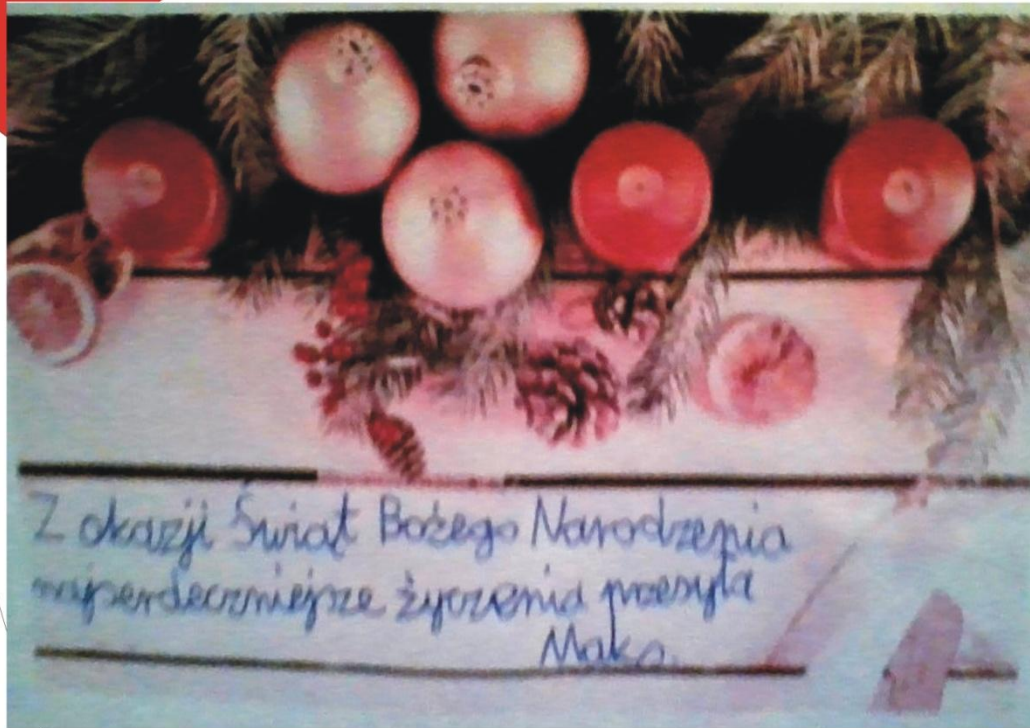 Z okazji Świąt Bożego Narodzenia
najserdeczniejsze życzenia przesyła
Maks.